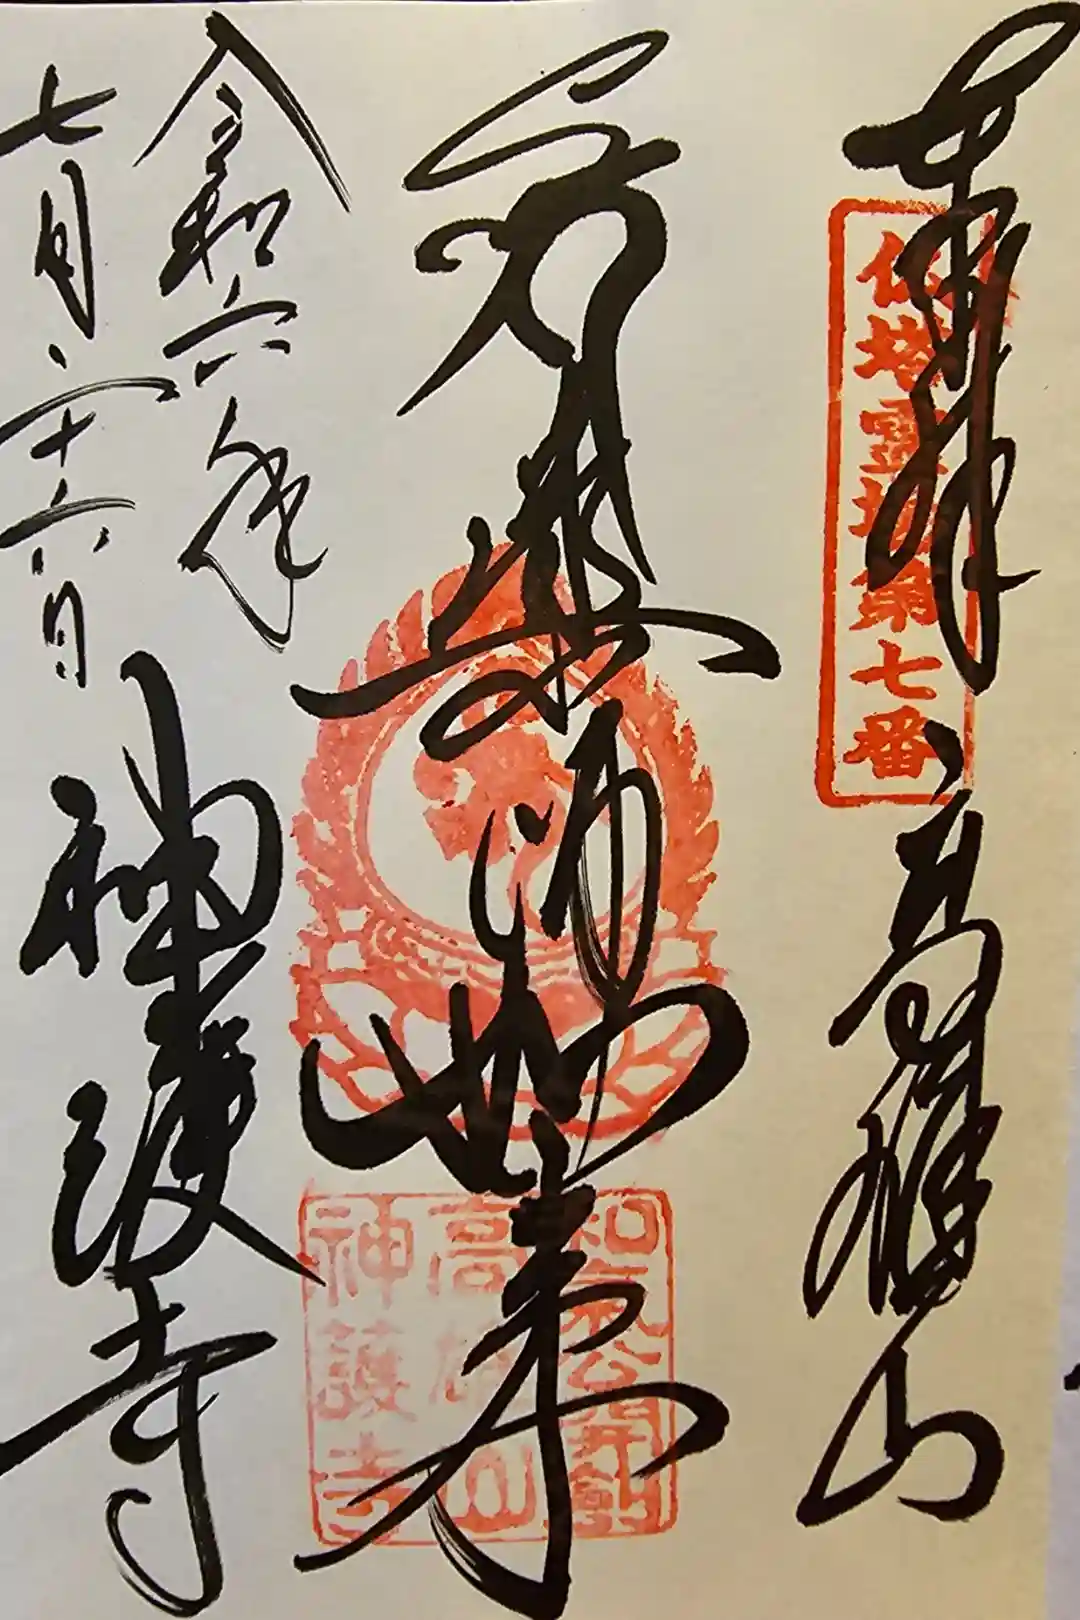 奉拝
高雄山
塔霊場第七番
薬師如来
和氣公
高雄山
神護寺
令和六年
七月二十六日
神護寺